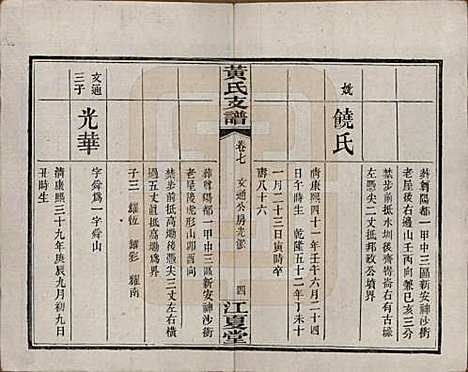 葬尊陽都一甲中三區新安神沙街
老屋後右邊山壬丙向兼已亥三分
禁步前抵水圳後齊嵴嵴右有古椽
左憑尖二丈抵邦政公墳界
妣
饒氏
清康熙四十一年壬午六月二十四
日午時生 乾隆五十二年丁未十
一月二十三日寅時卒
壽八十六
黃氏支譜
卷七
文通公房光派
四
江夏堂
葬尊陽都一甲中三區新安神沙街
老屋陵虎形山卯酉向
禁步前抵高塝後憑尖三丈左右橫
過五丈俱抵高塝為界
子三 耀恆 耀彩 耀南
文通
三子
光華
字舜為一字舜山
清康熙三十九年庚辰九月初九日
丑時生